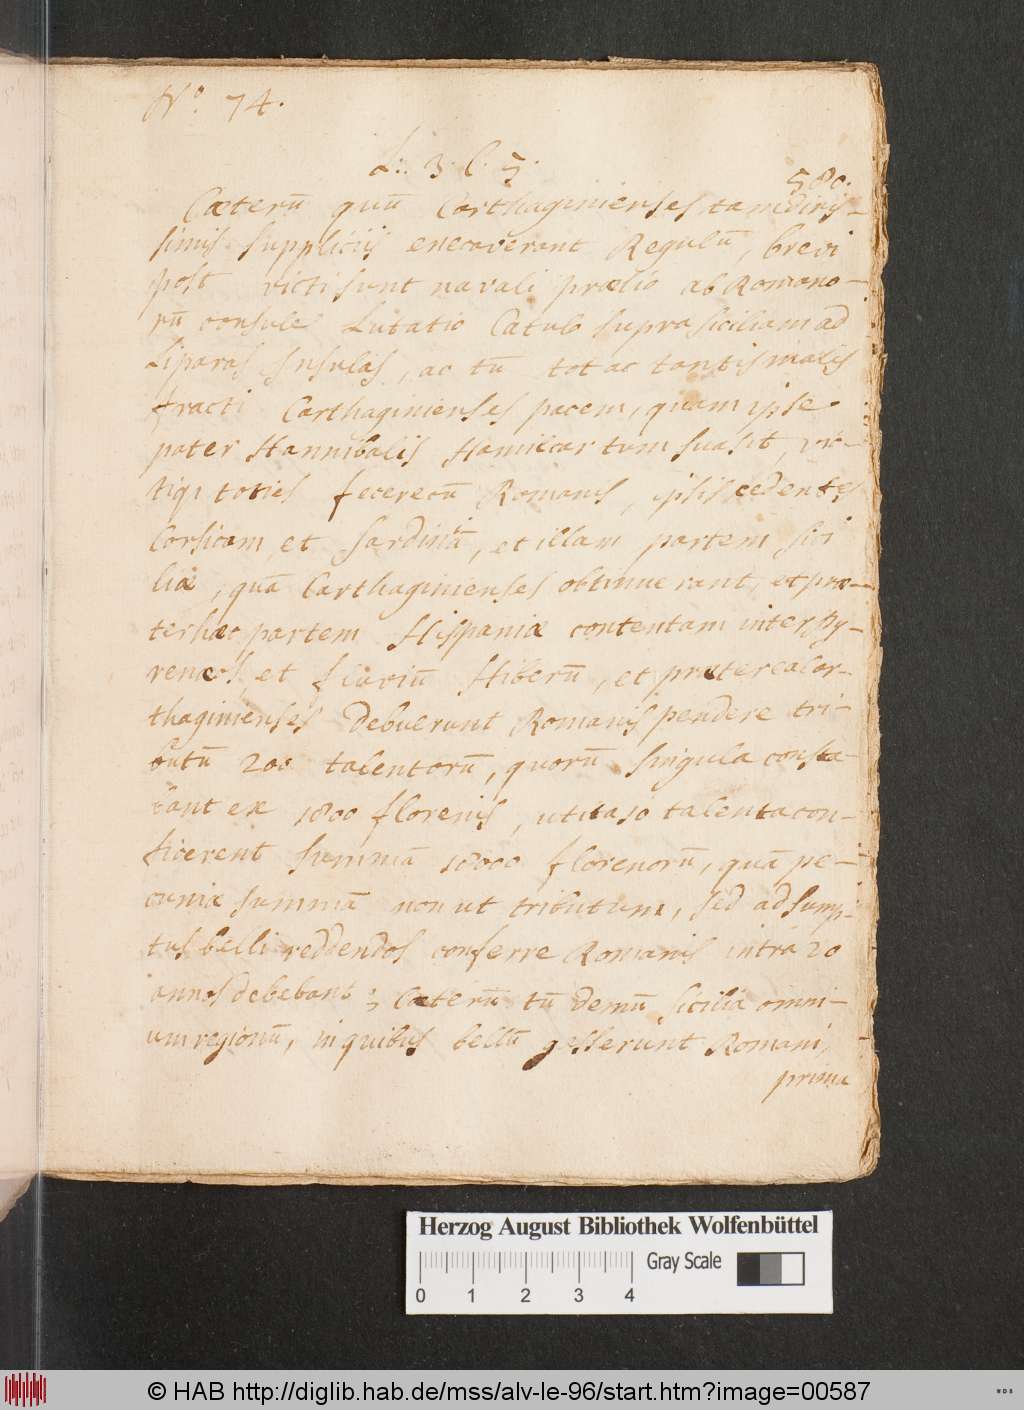 No. 74.
L. 3. C. 5.
580.
Cæterū quū Carthaginienses tam diris-
simis suppliciis enecaverant Regulū, brevi
post victi sunt navali prælio ab Romano-
rū consule Lutatio Catulo supra Siciliam ad
Liparas Insulas, ac tū tot ac tantis malis
fracti Carthaginienses pacem, quam ipse
pater Hannibalis Hamilcar tum suasit,
toties fecere cū Romanis, ipsis cedentes
Corsicam et Sardiniā, et illam partem Sici
liæ, quā Carthaginienses obtinuerant, et præ-
ter hæc partem Hispaniæ contentam inter Py-
renæos et fluviū Hiberū, et præterea Car-
thaginienses debuerunt Romanis pendere tri-
butū 200 talentorū, quorū singula consta-
bant ex 1800 florenis, uti talenta con-
ficerent summā 18000 florenorū, quā pe-
cuniæ summā non ut tributum, sed ad sump-
tus belli reddendos conferre Romanis intra 20
annos debebant; Cæterū tū demū Sicilia omni-
um regionū, in quibus bellū gesserunt Romani,
prima
Herzog August Bibliothek Wolfenbüttel
Gray Scale
0 1 2 3 4
© HAB http://diglib.hab.de/mss/alv-le-96/start.htm?image=00587